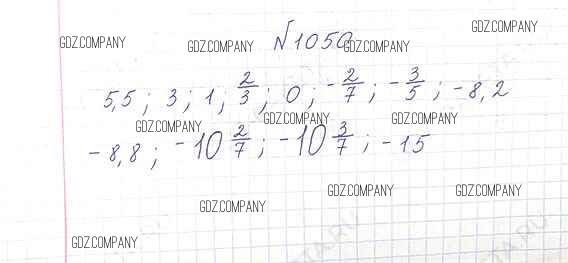 GDZ.COMPANY
GDZ.COMPANY GDZ.COMPANY GDZ.COMPANY
№1050
5,5; 3; 1; 2/3; 0; -2/7; -3/5; -8,2
GDZ.COMPANY GDZ.COMPANY GDZ.COMPANY
-8,8; -10 2/7; -10 3/7; -15
GDZ.COMPANY GDZ.COMPANY GDZ.COMPANY
GDZ.COMPANY